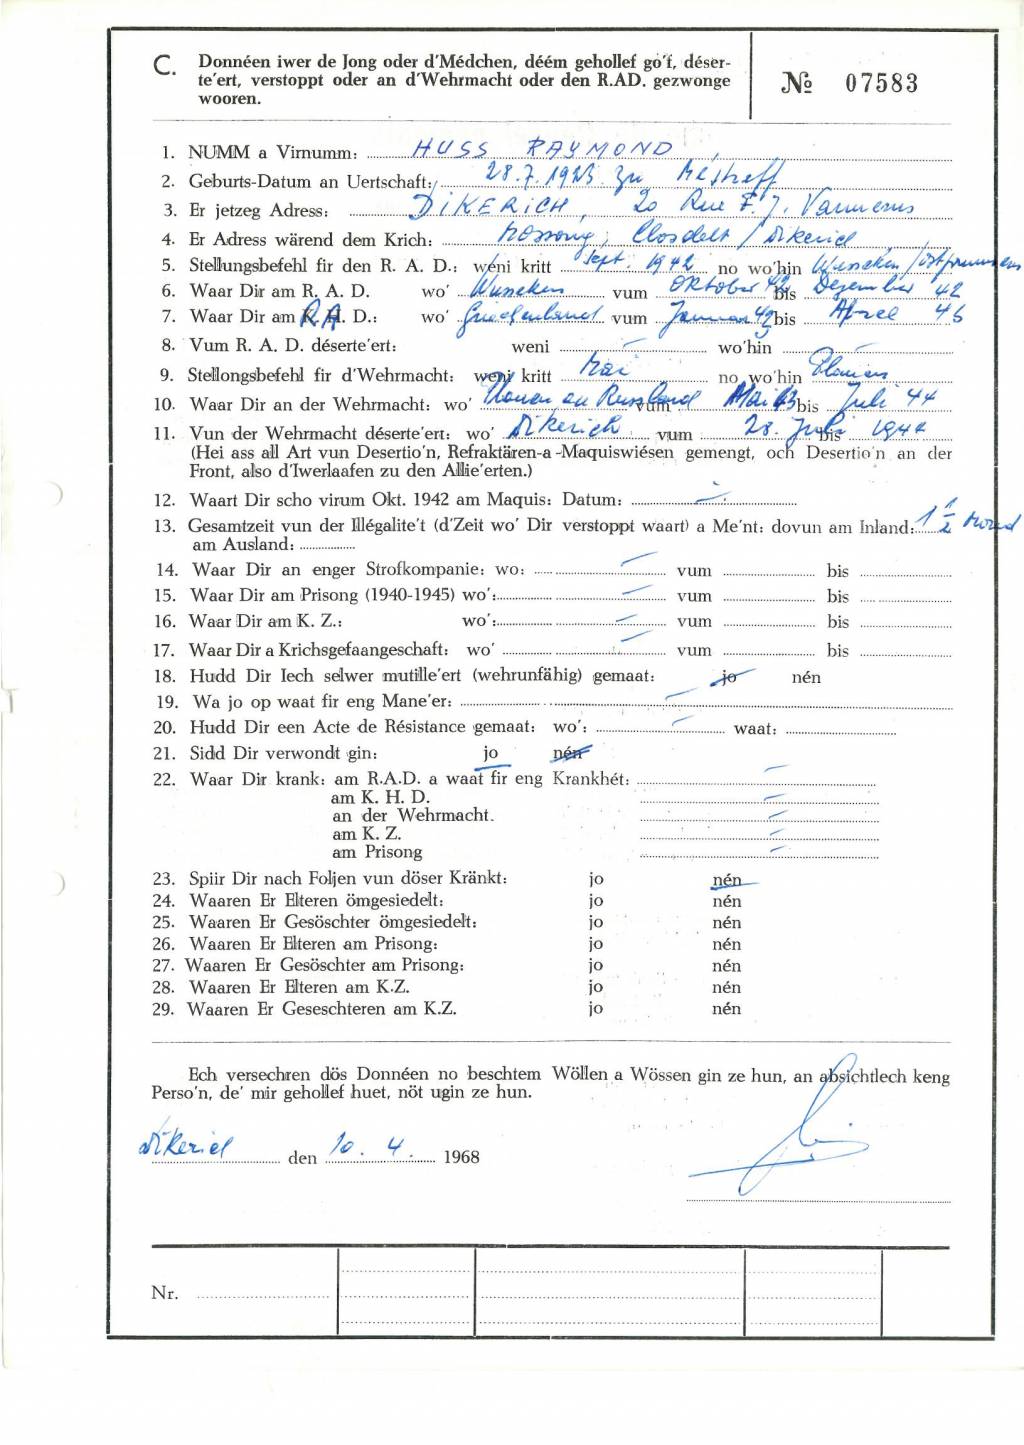 C. Donnéen iwer de Jong oder d'Médchen, déém gehollef go'f, déser-
te'ert, verstoppt oder an d'Wehrmacht oder den R.AD. gezwonge
wooren.
№ 07583
1. NUMM a Virnumm: HUSS RAYMOND
2. Geburts-Datum an Uertschaft: 28.7.1923 zu
3. Er jetzeg Adress: DIKERICH, 20 Rue F. J. Vannerus
4. Er Adress wärend dem Krich: Closdelt / Dikerich
5. Stellungsbefehl fir den R. A. D.: wéni kritt Sept. 1942 no wo'hin Wuseken / Ostpreussen
6. Waar Dir am R. A. D. wo' Wuseken vum Oktober 42 bis Dezember 42
7. Waar Dir am R A D.: wo' Griechenland vum Januar 43 bis April 43
8. Vum R. A. D. déserte'ert: weni – wo'hin –
9. Stellongsbefehl fir d'Wehrmacht: weni kritt Mai no wo'hin Plauen
10. Waar Dir an der Wehrmacht: wo' Plauen an Russland vum Mai 43 bis Juli 44
11. Vun der Wehrmacht déserte'ert: wo' Dikerich vum 28. Juli bis 1944
(Hei ass all Art vun Desertio'n, Refraktären-a-Maquiswiésen gemengt, och Desertio'n an der
Front, also d'Iwerlaafen zu den Allie'erten.)
12. Waart Dir scho virum Okt. 1942 am Maquis: Datum: –
13. Gesamtzeit vun der Illégalite't (d'Zeit wo' Dir verstoppt waart) a Me'nt: dovun am Inland: 1 1/2 Mond
am Ausland:
14. Waar Dir an enger Strofkompanie: wo: – vum bis
15. Waar Dir am Prisong (1940-1945) wo': – vum bis
16. Waar Dir am K. Z.: wo': – vum bis
17. Waar Dir a Krichsgefaangeschaft: wo' – vum bis
18. Hudd Dir Iech selwer mutille'ert (wehrunfähig) gemaat: jo nén
19. Wa jo op waat fir eng Mane'er: –
20. Hudd Dir een Acte de Résistance gemaat: wo': – waat:
21. Sidd Dir verwondt gin: jo nén
22. Waar Dir krank: am R.A.D. a waat fir eng Krankhét: –
am K. H. D. –
an der Wehrmacht. –
am K. Z. –
am Prisong –
23. Spiir Dir nach Foljen vun döser Kränkt: jo nén
24. Waaren Er Elteren ömgesiedelt: jo nén
25. Waaren Er Gesöschter ömgesiedelt: jo nén
26. Waaren Er Elteren am Prisong: jo nén
27. Waaren Er Gesöschter am Prisong: jo nén
28. Waaren Er Elteren am K.Z. jo nén
29. Waaren Er Geseschteren am K.Z. jo nén
Ech versechren dös Donnéen no beschtem Wöllen a Wössen gin ze hun, an absichtlech keng
Perso'n, de' mir gehollef huet, nöt ugin ze hun.
Dikerich den 10. 4. 1968
Nr.